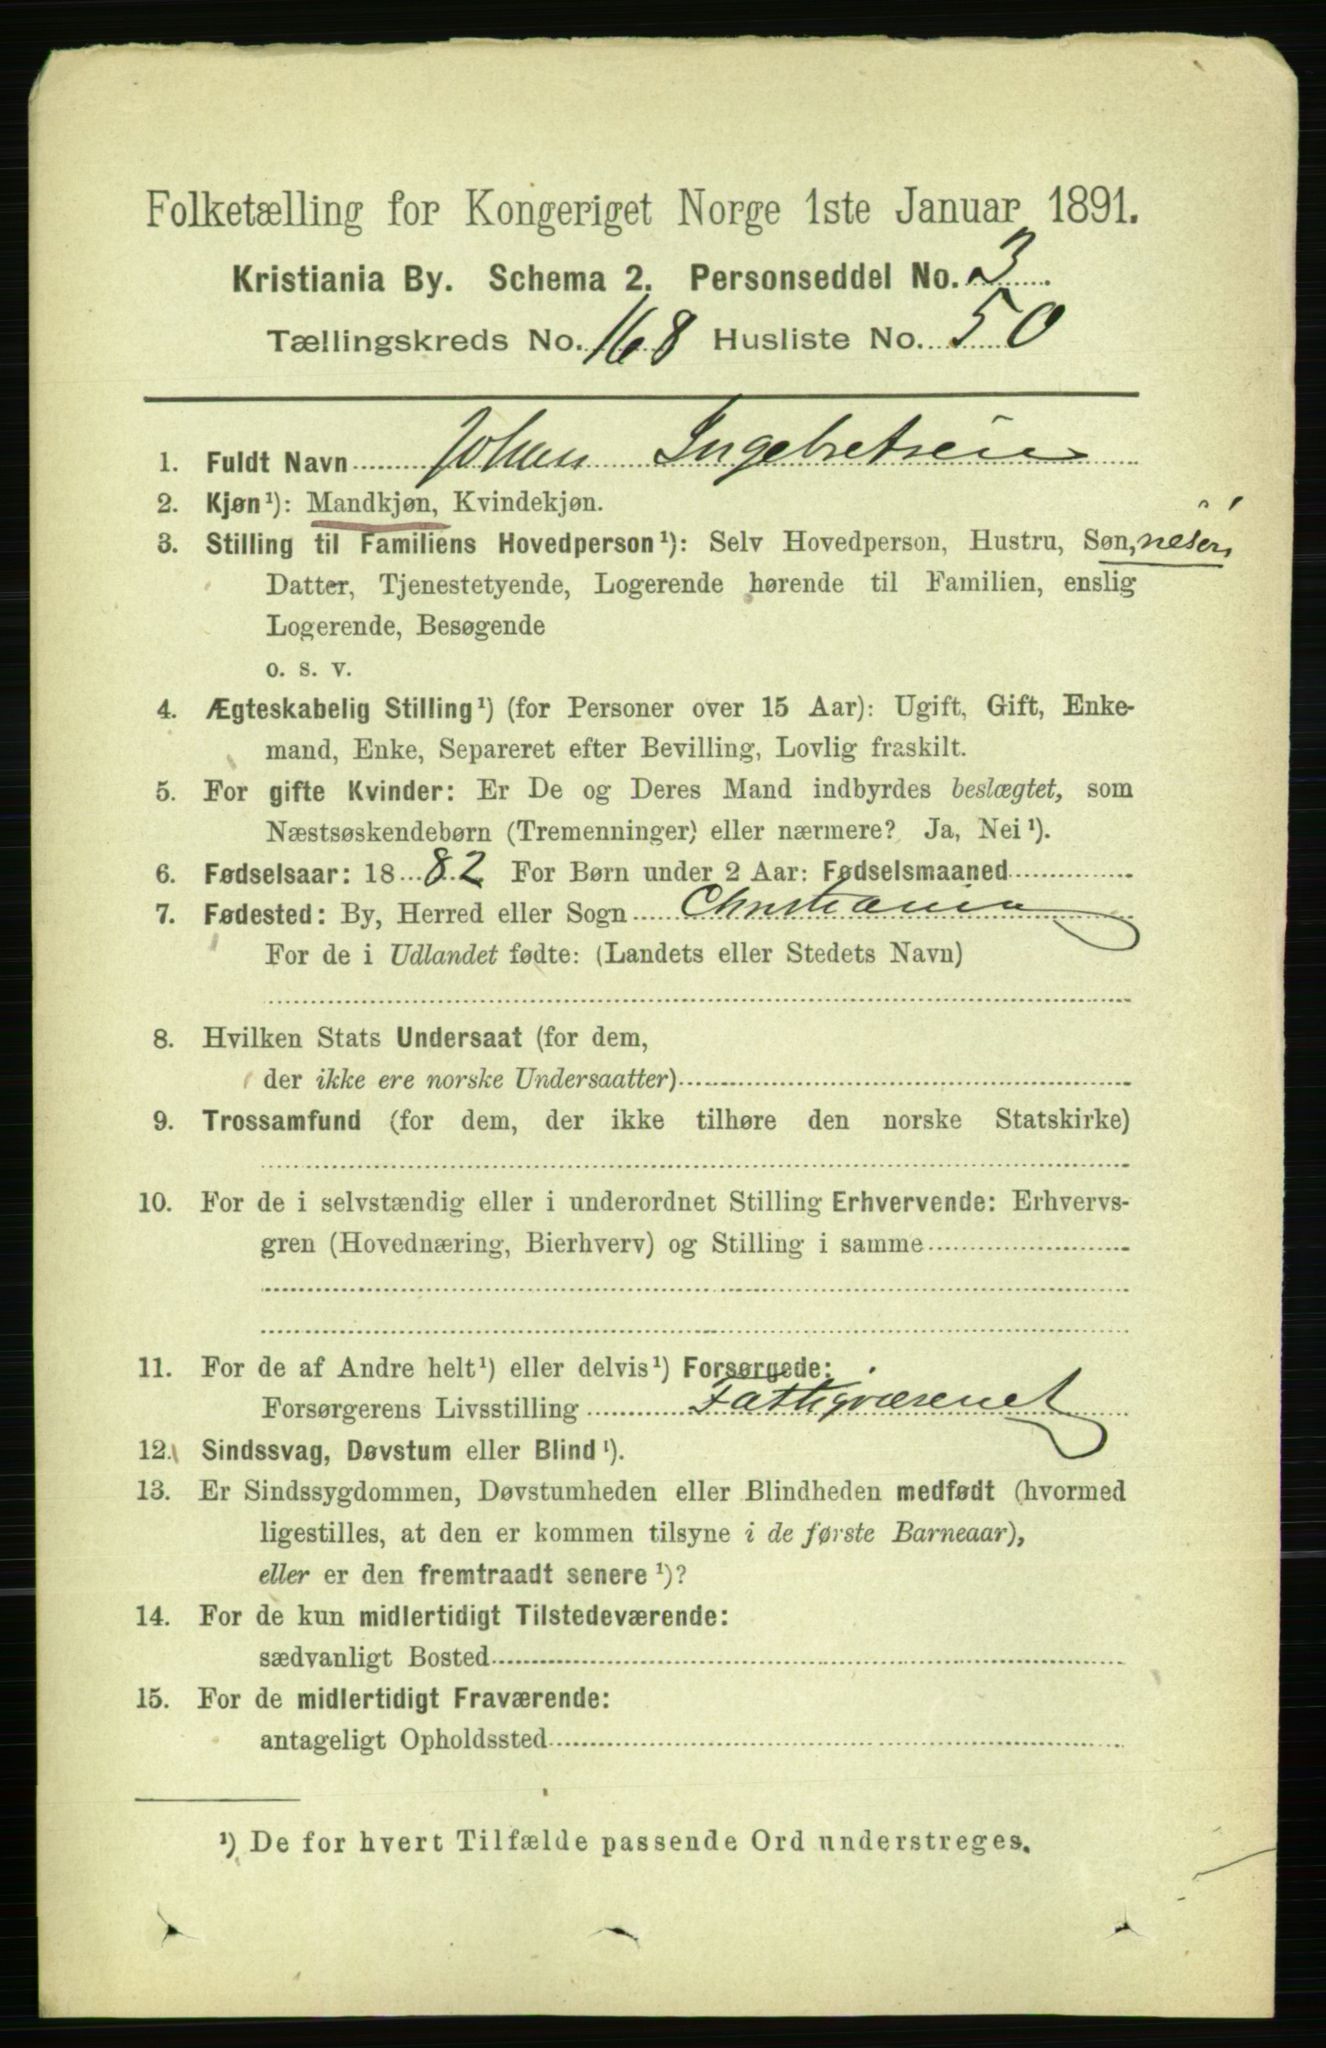 Folketælling for Kongeriget Norge 1ste Januar 1891.
Kristiania By. Schema 2. Personseddel No. 3
Tællingskreds No. 168 Husliste No. 50
1. Fuldt Navn Johan Ingebretsen
2. Kjøn¹): Mandkjøn, Kvindekjøn.
3. Stilling til Familiens Hovedperson¹): Selv Hovedperson, Hustru, Søn, nesøn
Datter, Tjenestetyende, Logerende hørende til Familien, enslig
Logerende, Besøgende
o. s. v.
4. Ægteskabelig Stilling¹) (for Personer over 15 Aar): Ugift, Gift, Enke-
mand, Enke, Separeret efter Bevilling, Lovlig fraskilt.
5. For gifte Kvinder: Er De og Deres Mand indbyrdes beslægtet, som
Næstsøskendebørn (Tremenninger) eller nærmere? Ja, Nei¹).
6. Fødselsaar: 1882 For Børn under 2 Aar: Fødselsmaaned
7. Fødested: By, Herred eller Sogn Christiania
For de i Udlandet fødte: (Landets eller Stedets Navn)
8. Hvilken Stats Undersaat (for dem,
der ikke ere norske Undersaatter)
9. Trossamfund (for dem, der ikke tilhøre den norske Statskirke)
10. For de i selvstændig eller i underordnet Stilling Erhvervende: Erhvervs-
gren (Hovednæring, Bierhverv) og Stilling i samme
11. For de af Andre helt¹) eller delvis¹) Forsørgede:
Forsørgerens Livsstilling Fattigvæsenet
12. Sindssvag, Døvstum eller Blind¹).
13. Er Sindssygdommen, Døvstumheden eller Blindheden medfødt (hvormed
ligestilles, at den er kommen tilsyne i de første Barneaar),
eller er den fremtraadt senere¹)?
14. For de kun midlertidigt Tilstedeværende:
sædvanligt Bosted
15. For de midlertidigt Fraværende:
antageligt Opholdssted
¹) De for hvert Tilfælde passende Ord understreges.